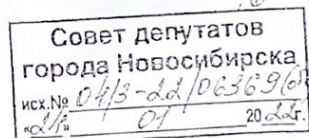 Совет депутатов
города Новосибирска
исх.№ 04/3-22/06369(б)
«21» 01 2022г.